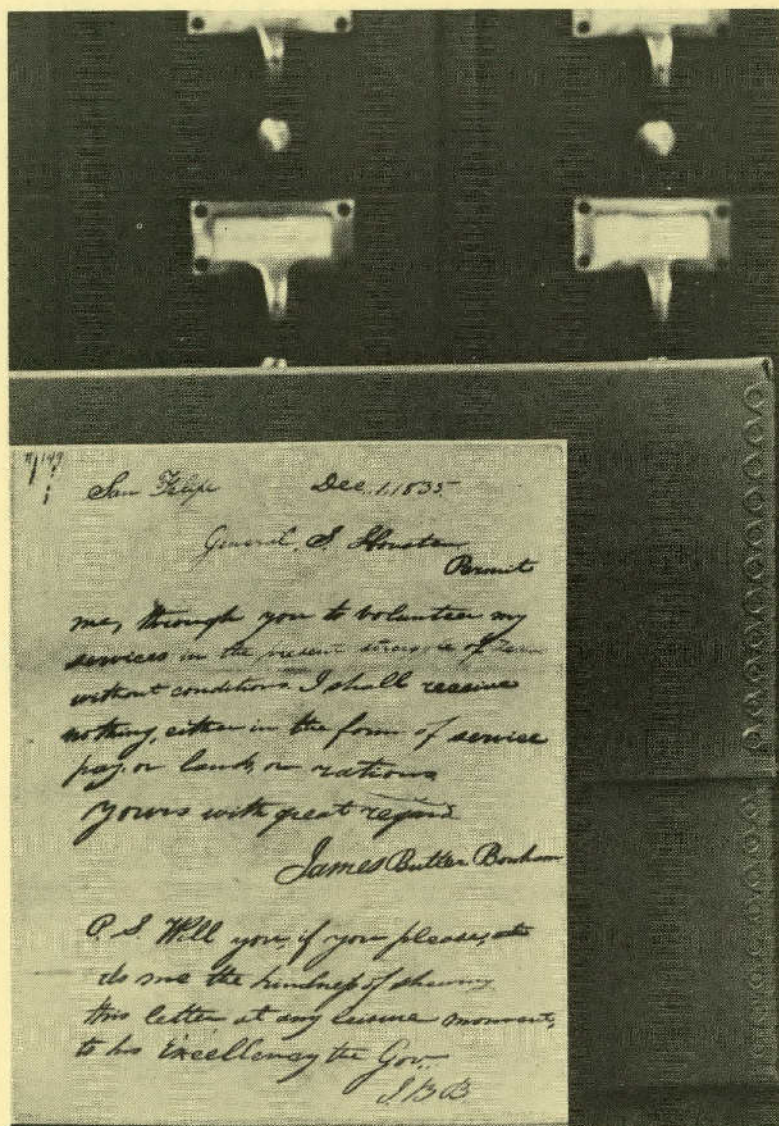 San Felipe Dec. 1, 1835
General, S. Houston
Permit
me, through you to volunteer my
services in the present struggle of Texas
without conditions. I shall receive
nothing, either in the form of service
pay, or lands, or rations
Yours with great regard
James Butler Bonham
P.S. Will you, if you please,
do me the kindness of shewing
this letter at any leisure moment,
to his Excellency the Gov.
J.B.B.